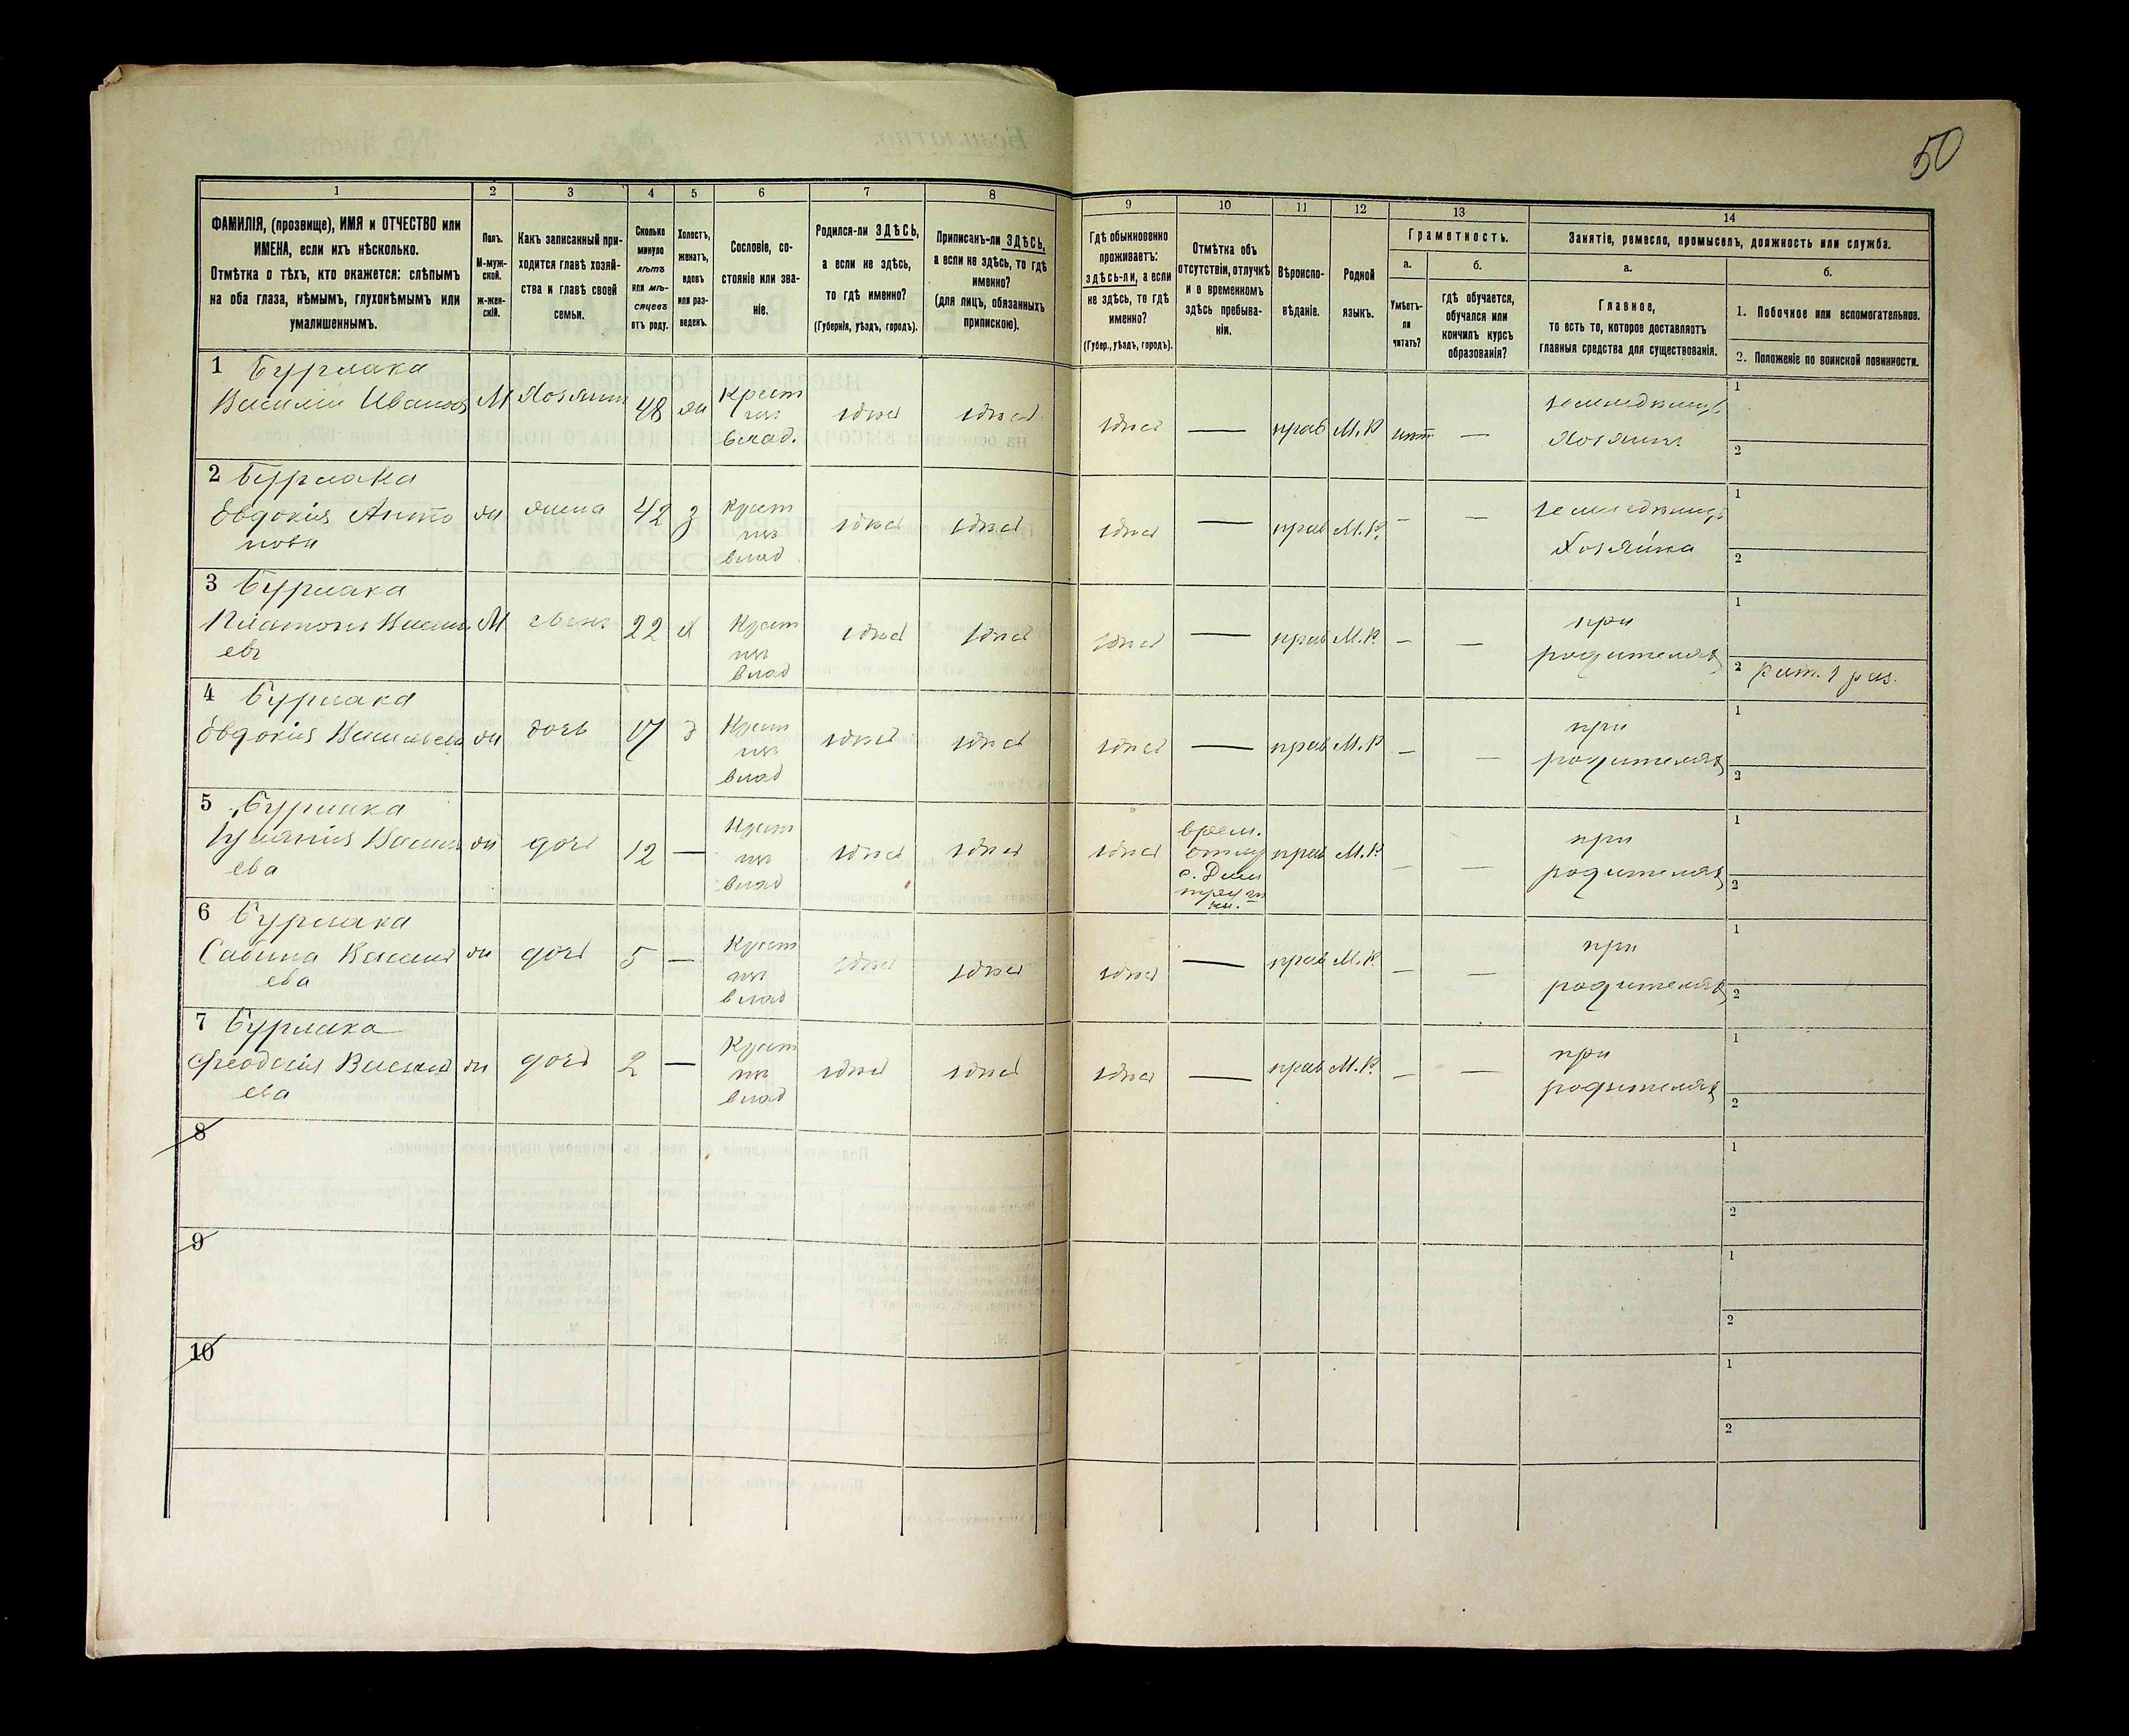 50
1 2 3 4 5 6 7 8 9 10 11 12 13 14
ФАМИЛІЯ, (прозвище), ИМЯ и ОТЧЕСТВО или
ИМЕНА, если ихъ нѣсколько.
Отмѣтка о тѣхъ, кто окажется: слѣпымъ
на оба глаза, нѣмымъ, глухонѣмымъ или
умалишеннымъ.
Полъ.
М-муж-
ской.
ж-жен-
скій.
Какъ записанный при-
ходится главѣ хозяй-
ства и главѣ своей
семьи.
Сколько
минуло
лѣтъ
или мѣ-
сяцевъ
отъ роду.
Холостъ,
женатъ,
вдовъ
или раз-
веденъ.
Сословіе, со-
стояніе или зва-
ніе.
Родился-ли ЗДѢСЬ,
а если не здѣсь,
то гдѣ именно?
(Губернія, уѣздъ, городъ).
Приписанъ-ли ЗДѢСЬ,
а если не здѣсь, то гдѣ
именно?
(для лицъ, обязанныхъ
припискою).
Гдѣ обыкновенно
проживаетъ:
здѣсь-ли, а если
не здѣсь, то гдѣ
именно?
(Губер., уѣздъ, городъ).
Отмѣтка объ
отсутствіи, отлучкѣ
и о временномъ
здѣсь пребыва-
ніи.
Вѣроиспо-
вѣданіе.
Родной
языкъ.
Грамотность.
а.
Умѣетъ-
ли
читать?
б.
гдѣ обучается,
обучался или
кончилъ курсъ
образованія?
Занятіе, ремесло, промыселъ, должность или служба.
а.
Главное,
то есть то, которое доставляетъ
главныя средства для существованія.
б.
1. Побочное или вспомогательное.
2. Положеніе по воинской повинности.
1 Бурлака
Василій Ивановъ М Хозяинъ 48 ж Крест
изъ
влад. здѣсь здѣсь здѣсь — прав М.Р. нѣт — земледѣлец
Хозяинъ 1
2
2 Бурлака
Евдокія Анто
нова ж жена 42 з Крест
изъ
влад здѣсь здѣсь здѣсь — прав М.Р. — — земледѣлец
Хозяйка 1
2
3 Бурлака
Платонъ Василь
евъ М сынъ 22 х Крест
изъ
влад здѣсь здѣсь здѣсь — прав М.Р. — — при
родителях 1
2 рат. 1 раз.
4 Бурлака
Евдокія Васильева ж дочь 17 д Крест
изъ
влад здѣсь здѣсь здѣсь — прав М.Р. — — при
родителях 1
2
5 Бурлака
Василь
ева ж дочь 12 — Крест
изъ
влад здѣсь здѣсь здѣсь врем.
отлуч
с. Дми
прав М.Р. — — при
родителях 1
2
6 Бурлака
Сабина Василь
ева ж дочь 5 — Крест
изъ
влад здѣсь здѣсь здѣсь — прав М.Р. — — при
родителях 1
2
7 Бурлака
Феодосія Василь
ева ж дочь 2 — Крест
изъ
влад здѣсь здѣсь здѣсь — прав М.Р. — — при
родителях 1
2
8 1
2
9 1
2
10 1
2